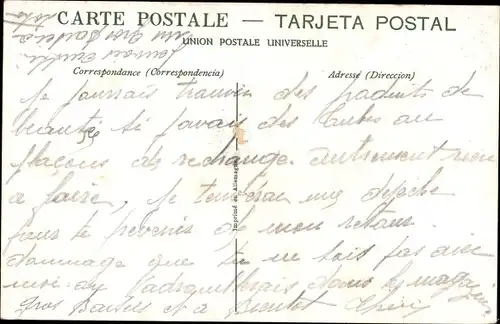 CARTE POSTALE — TARJETA POSTAL
UNION POSTALE UNIVERSELLE
Correspondance (Correspondencia)
Adresse (Direccion)
Je pourrais trouver des produits de
beauté si j'avais des tubes ou
flacons de rechange autrement rien
a faire, je t'enverrai une dépêche
pour te prévenir de mon retour
dommage que tu ne sois pas avec
moi dans le magasin
Gros Baisers et a Bientot Cheri
Imprimé en Allemagne